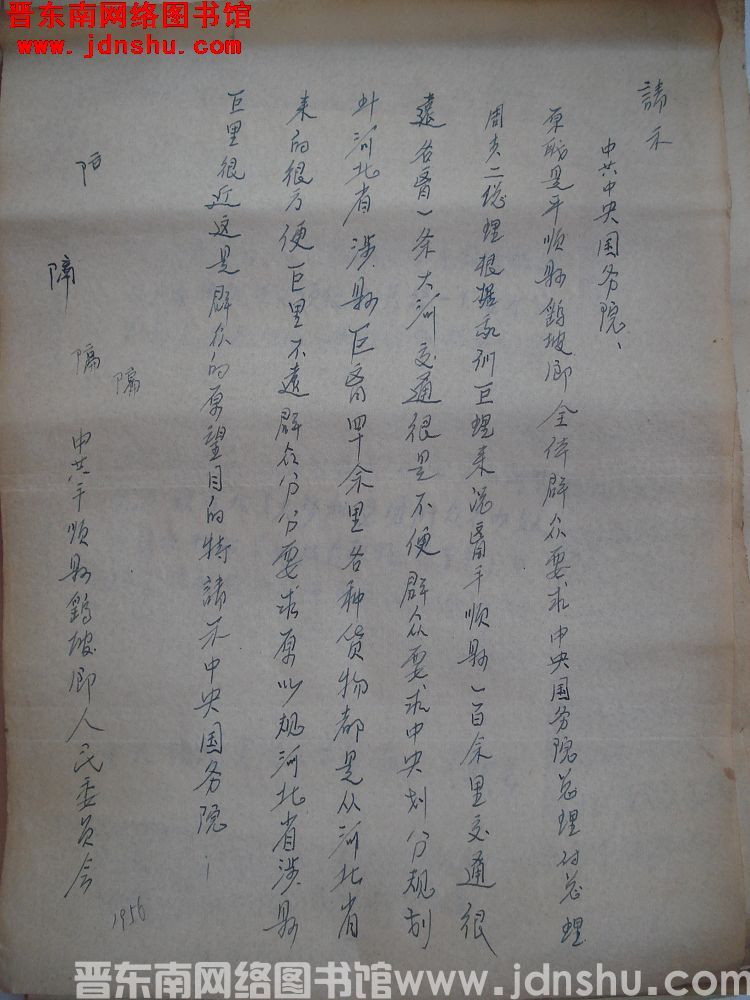 晋东南网络图书馆
www.jdnshu.com
請示
中共中央国务院、
原 是平順县 坡 全体群众要求中央国务院总理付总理
周 二总理根据 們巨理来说 平順县一百余里交通很
遠 一条大河交通很是不便群众要求中央划分规划
河北省涉县巨 四十余里各种货物都是从河北省
来的很方便巨里不遠群众分分要求原以规河北省涉县
巨里很近这是群众的原望目的特請示中央国务院
隔 隔
中共平順县 坡 人民委员会
1956
晋东南网络图书馆www.jdnshu.com